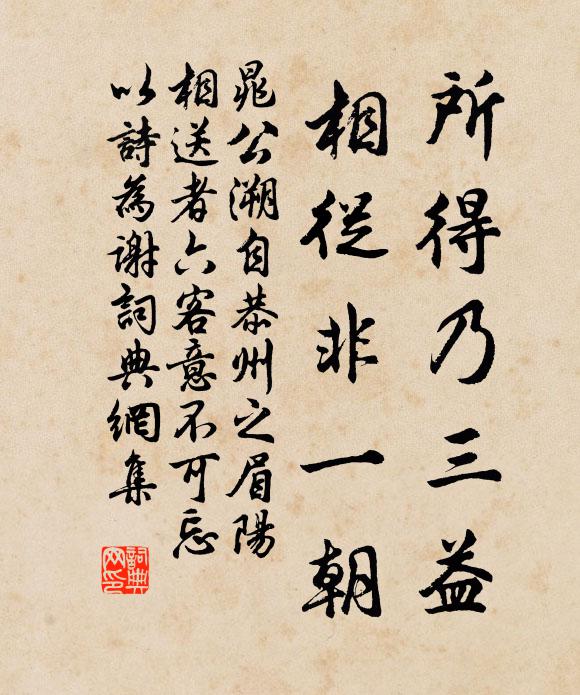 所得乃三益
相從非一朝
晁公溯自恭州之眉陽
相送者六客意不可忘
以詩為謝詞典網集
詞典网印